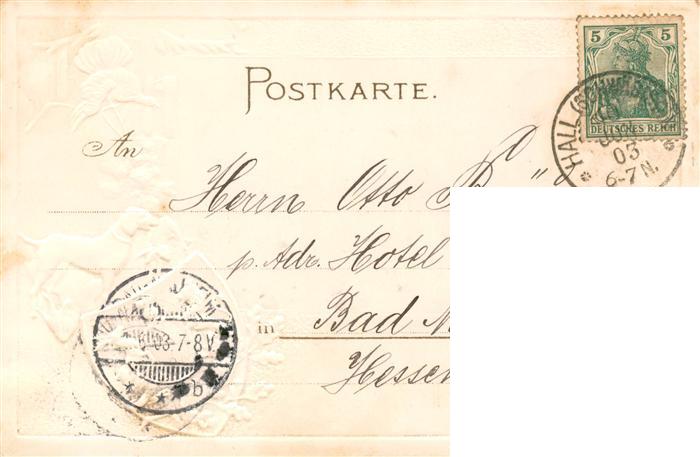 POSTKARTE.
5 5
DEUTSCHES REICH
HALL
03
6-7 N.
An
Herrn Otto
p. Adr. Hotel
in Bad
Hessen
03·7-8 V